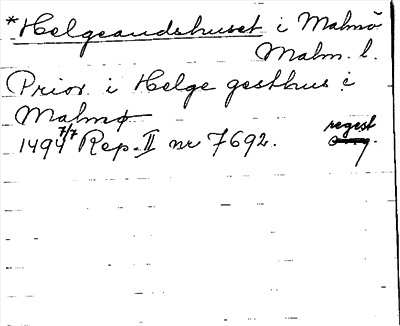 *Helgeandshuset i Malmö
Malm. l.
Prior. i Helge gesthus i
Malmø
1494 7/7 Rep. II nr 7692. regest